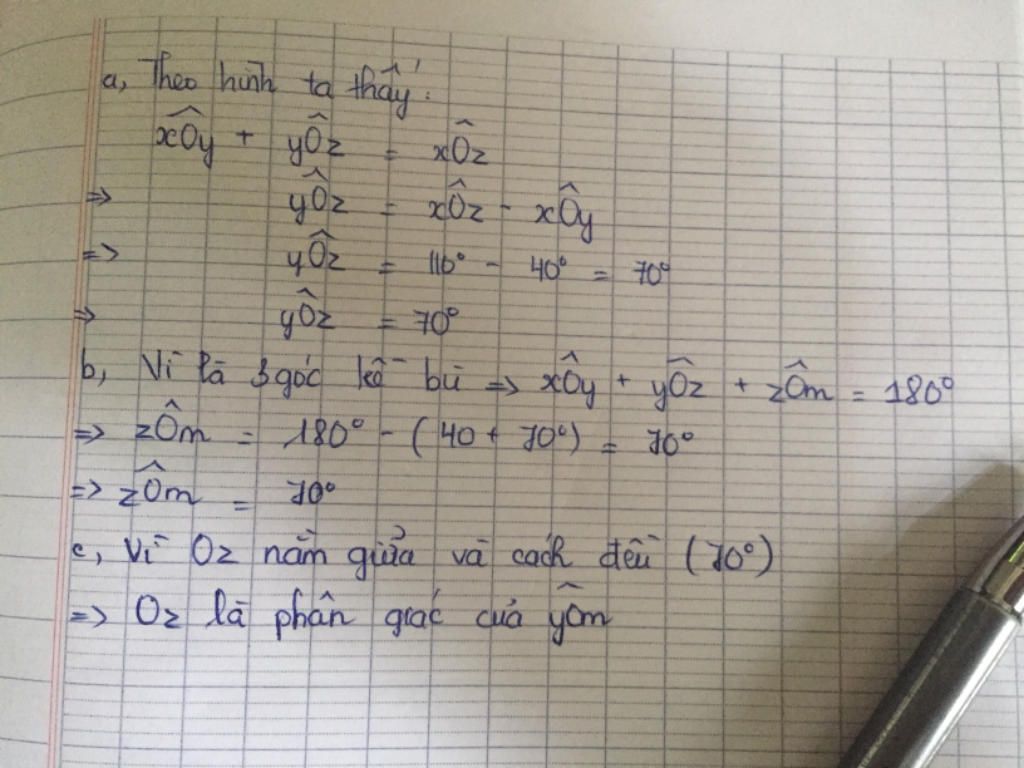 a, Theo hình ta thấy:
xÔy + yÔz = xÔz
=> yÔz = xÔz - xÔy
=> yÔz = 110° - 40° = 70°
=> yÔz = 70°
b, Vì là 3 góc kề bù => xÔy + yÔz + zÔm = 180°
=> zÔm = 180° - (40 + 70°) = 70°
=> zÔm = 70°
c, Vì Oz nằm giữa và cách đều (70°)
=> Oz là phân giác của yÔm